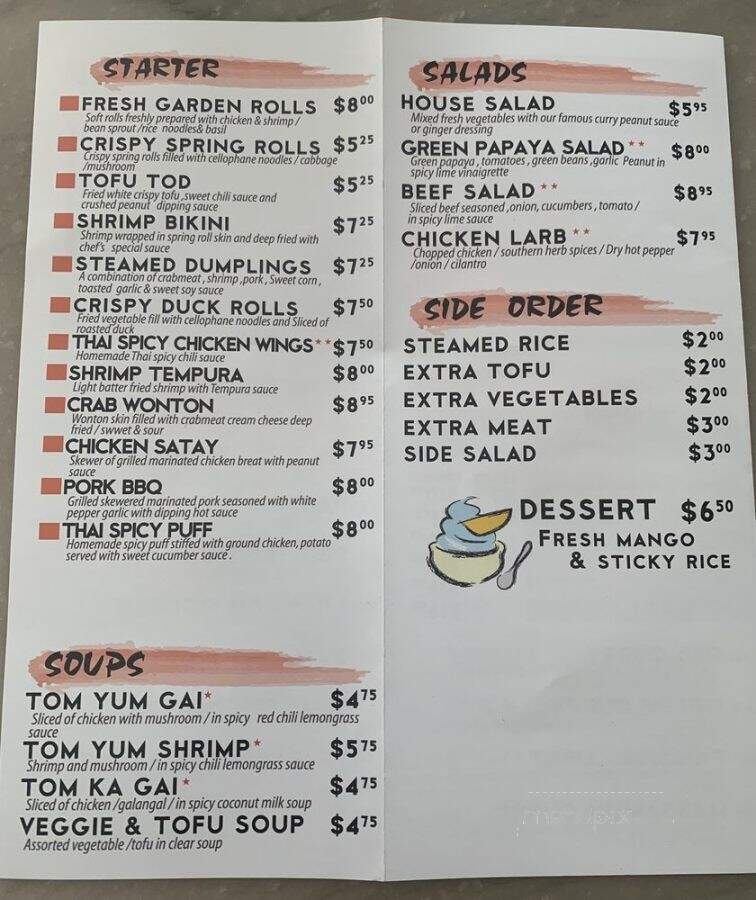 STARTER
FRESH GARDEN ROLLS $8⁰⁰
Soft rolls freshly prepared with chicken & shrimp /
bean sprout /rice noodles& basil
CRISPY SPRING ROLLS $5²⁵
Crispy spring rolls filled with cellophane noodles / cabbage
/mushroom
TOFU TOD $5²⁵
Fried white crispy tofu ,sweet chili sauce and
crushed peanut dipping sauce
SHRIMP BIKINI $7²⁵
Shrimp wrapped in spring roll skin and deep fried with
chef's special sauce
STEAMED DUMPLINGS $7²⁵
A combination of crabmeat , shrimp ,pork , Sweet corn ,
toasted garlic & sweet soy sauce
CRISPY DUCK ROLLS $7⁵⁰
Fried vegetable fill with cellophane noodles and Sliced of
roasted duck
THAI SPICY CHICKEN WINGS** $7⁵⁰
Homemade Thai spicy chili sauce
SHRIMP TEMPURA $8⁰⁰
Light batter fried shrimp with Tempura sauce
CRAB WONTON $8⁹⁵
Wonton skin filled with crabmeat cream cheese deep
fried / swwet & sour
CHICKEN SATAY $7⁹⁵
Skewer of grilled marinated chicken breat with peanut
sauce
PORK BBQ $8⁰⁰
Grilled skewered marinated pork seasoned with white
pepper garlic with dipping hot sauce
THAI SPICY PUFF $8⁰⁰
Homemade spicy puff stiffed with ground chicken, potato
served with sweet cucumber sauce .
SOUPS
TOM YUM GAI* $4⁷⁵
Sliced of chicken with mushroom / in spicy red chili lemongrass
sauce
TOM YUM SHRIMP* $5⁷⁵
Shrimp and mushroom / in spicy chili lemongrass sauce
TOM KA GAI* $4⁷⁵
Sliced of chicken /galangal / in spicy coconut milk soup
VEGGIE & TOFU SOUP $4⁷⁵
Assorted vegetable /tofu in clear soup
SALADS
HOUSE SALAD $5⁹⁵
Mixed fresh vegetables with our famous curry peanut sauce
or ginger dressing
GREEN PAPAYA SALAD** $8⁰⁰
Green papaya , tomatoes , green beans ,garlic Peanut in
spicy lime vinaigrette
BEEF SALAD** $8⁹⁵
Sliced beef seasoned ,onion, cucumbers , tomato /
in spicy lime sauce
CHICKEN LARB** $7⁹⁵
Chopped chicken / southern herb spices / Dry hot pepper
/onion / cilantro
SIDE ORDER
STEAMED RICE $2⁰⁰
EXTRA TOFU $2⁰⁰
EXTRA VEGETABLES $2⁰⁰
EXTRA MEAT $3⁰⁰
SIDE SALAD $3⁰⁰
DESSERT $6⁵⁰
FRESH MANGO
& STICKY RICE